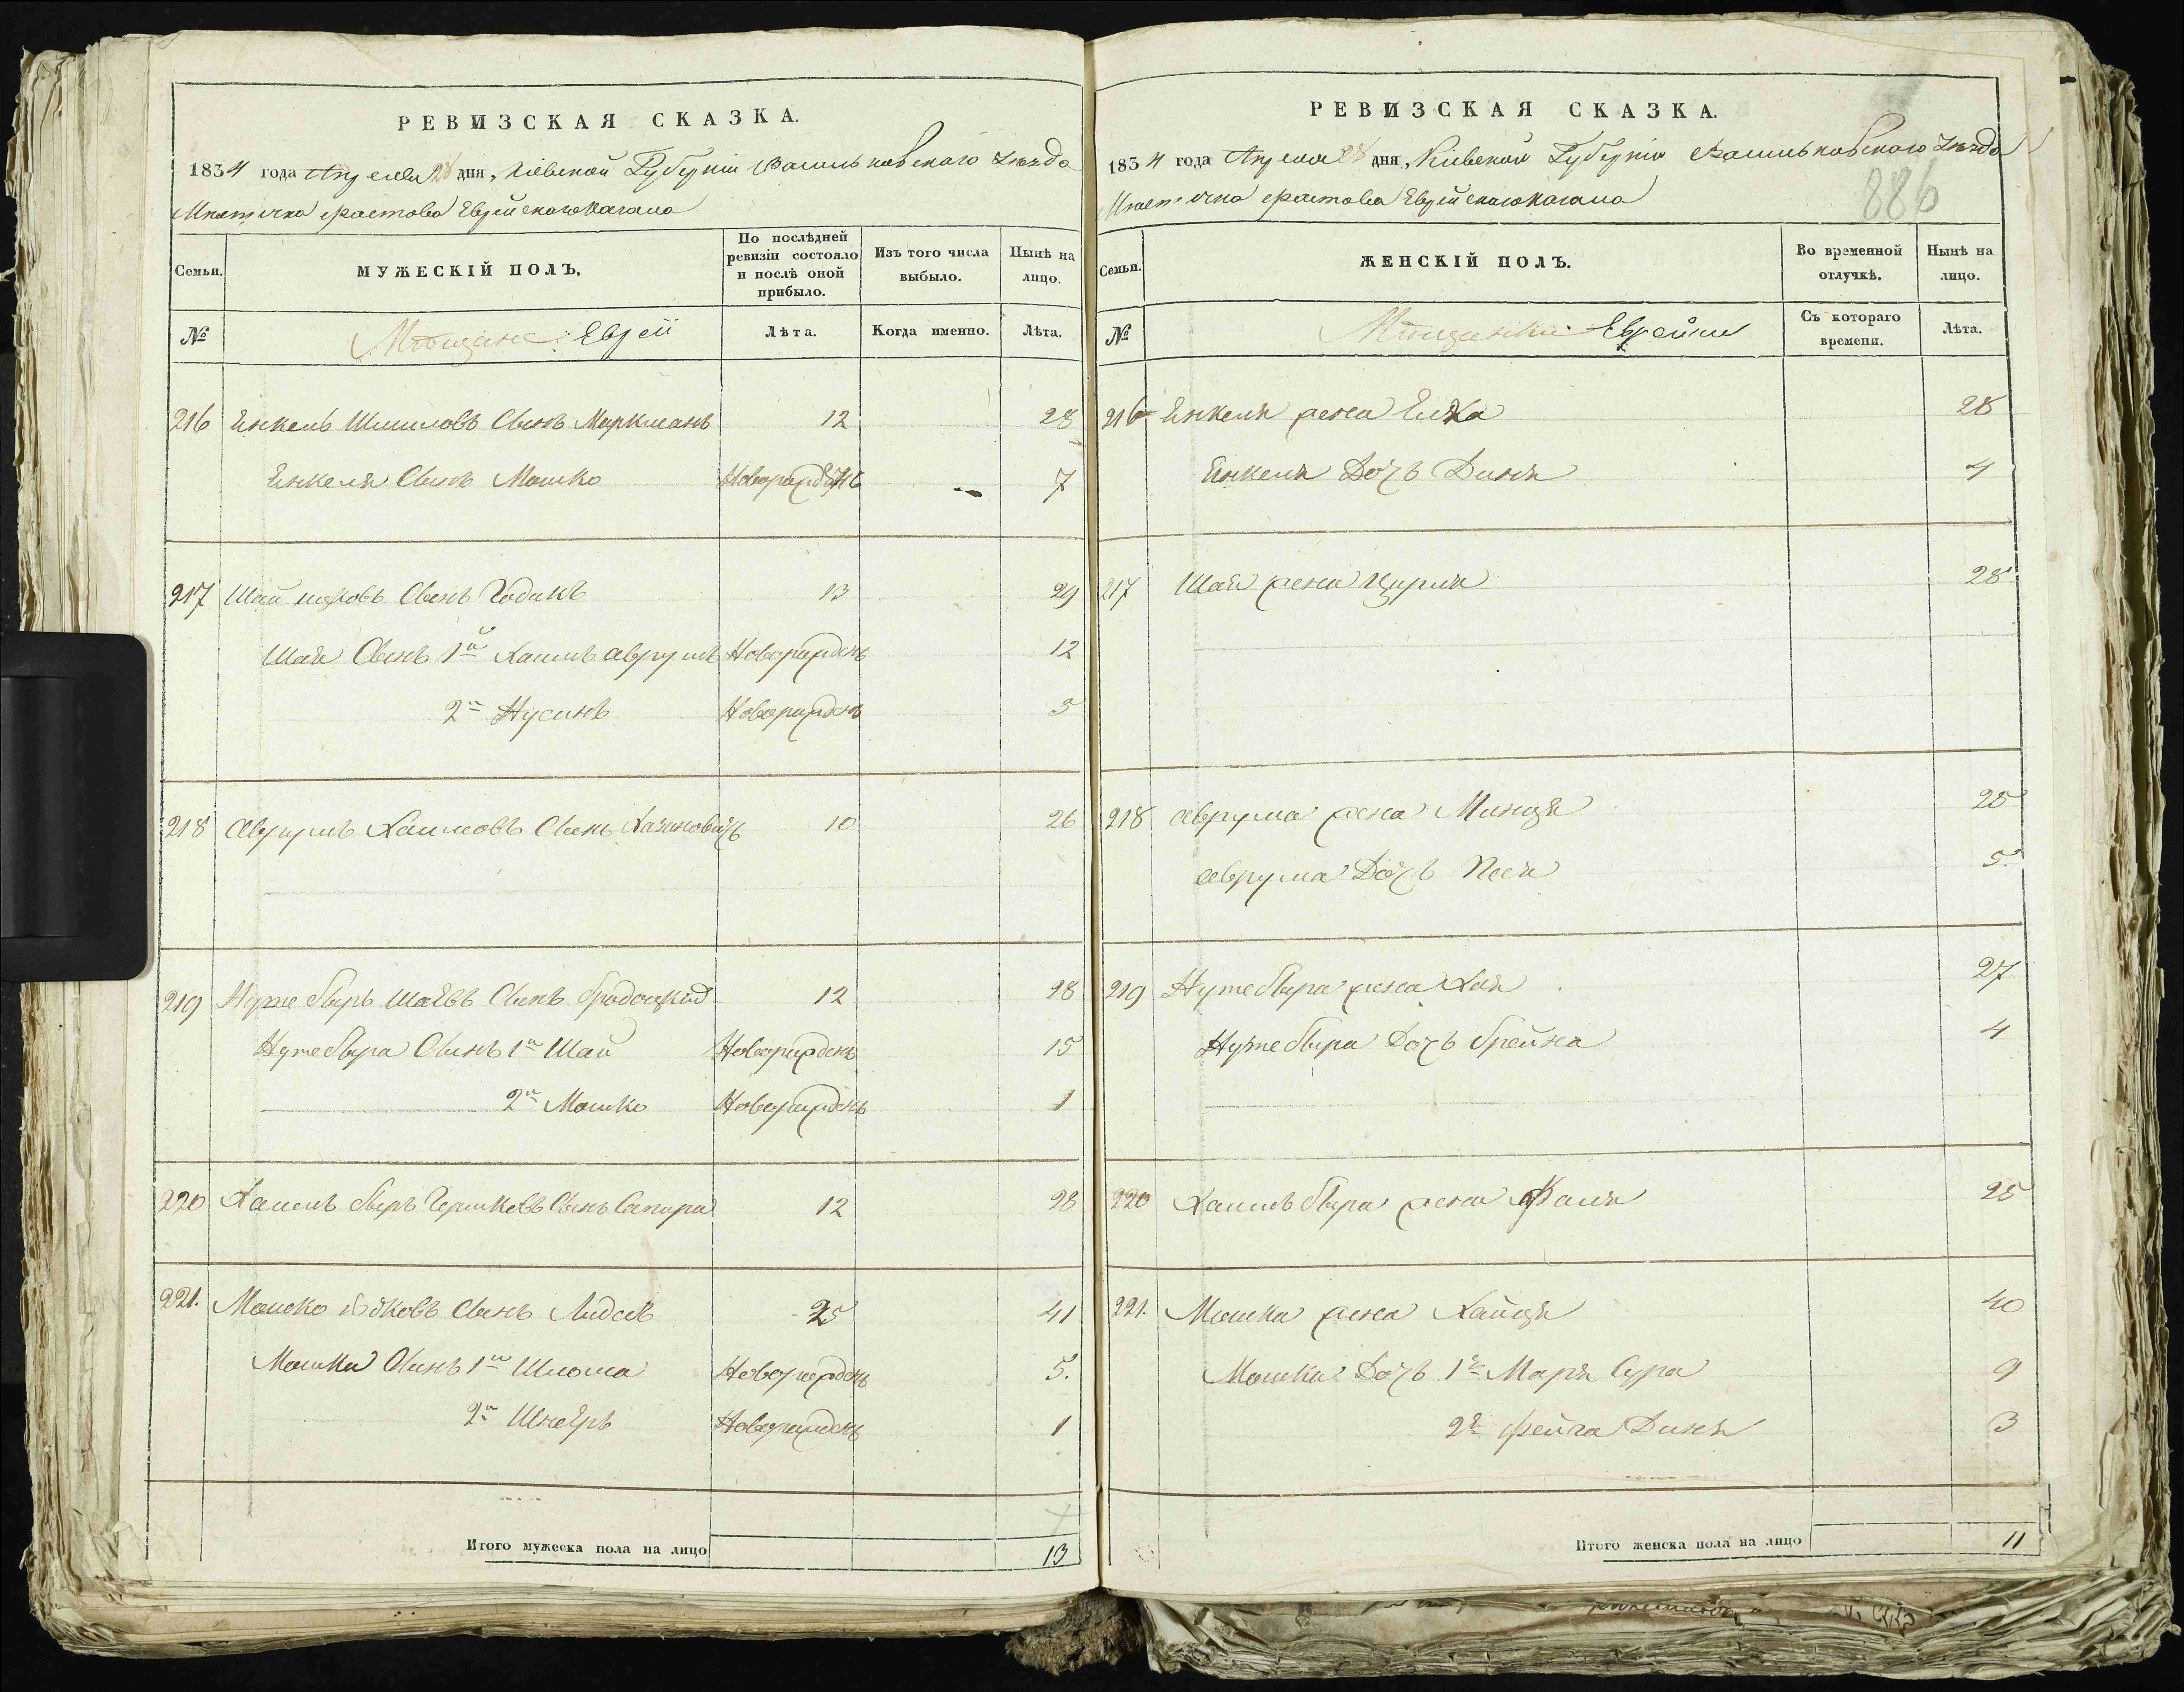 РЕВИЗСКАЯ СКАЗКА.
1834 года Апреля 28 дня, Кіевской Губерніи Васильковскаго Уезда
Местечка Фастова Еврейского Кагала
Семьи.
МУЖЕСКІЙ ПОЛЪ.
По послѣдней ревизіи состояло и послѣ оной прибыло.
Изъ того числа выбыло.
Нынѣ на лицо.
№
Мѣщане Евреи
Лѣта.
Когда именно.
Лѣта.
216 Енкель Шмиловъ Сынъ Маркманъ 12 28
Енкеля Сынъ Мошко Новорожденъ 7
217 Шая Сынъ Годикъ 13 29
Шаи Сынъ 1й Хаимъ Аврумъ Новорожденъ 12
2й Нусинъ Новорожденъ 3
218 Аврумъ Хаимовъ Сынъ Хазановичъ 10 26
219 Нутe Беръ Шаевъ Сынъ Бродоцкий 12 28
Нуте Бера Сынъ 1й Шай Новорожденъ 15
2й Мошко Новорожденъ 1
220 Хаимъ Беръ Гершковъ Сынъ Сапира 12 28
221. Мошко Сынъ 25 41
Мошка Сынъ 1й Шлома Новорожденъ 5.
2й Шнееръ Новорожденъ 1
Итого мужеска пола на лицо 13
РЕВИЗСКАЯ СКАЗКА.
1834 года Апреля 28 дня, Кіевской Губерніи Васильковскаго Уезда
Местечка Фастова Еврейскаго Кагала
886
Семьи.
ЖЕНСКІЙ ПОЛЪ.
Во временной отлучкѣ.
Нынѣ на лицо.
№
Мѣщанки Еврейки
Съ котораго времени.
Лѣта.
216 Енкеля жена Елка 28
Енкеля Дочъ Диня 4
217 Шаи жена Цирля 28
218 Аврума жена Минця 25
Аврума Дочъ Песя 5.
219 Нуте Бера жена Хая 27
Нуте Бера Дочъ Брейна 4
220 Хаимъ Бера жена Фаля 25
221. Мошка жена Хайця 40
Мошка Дочъ 1я Маря Сура 9
2я Фейга Диня 3
Итого женска пола на лицо 11